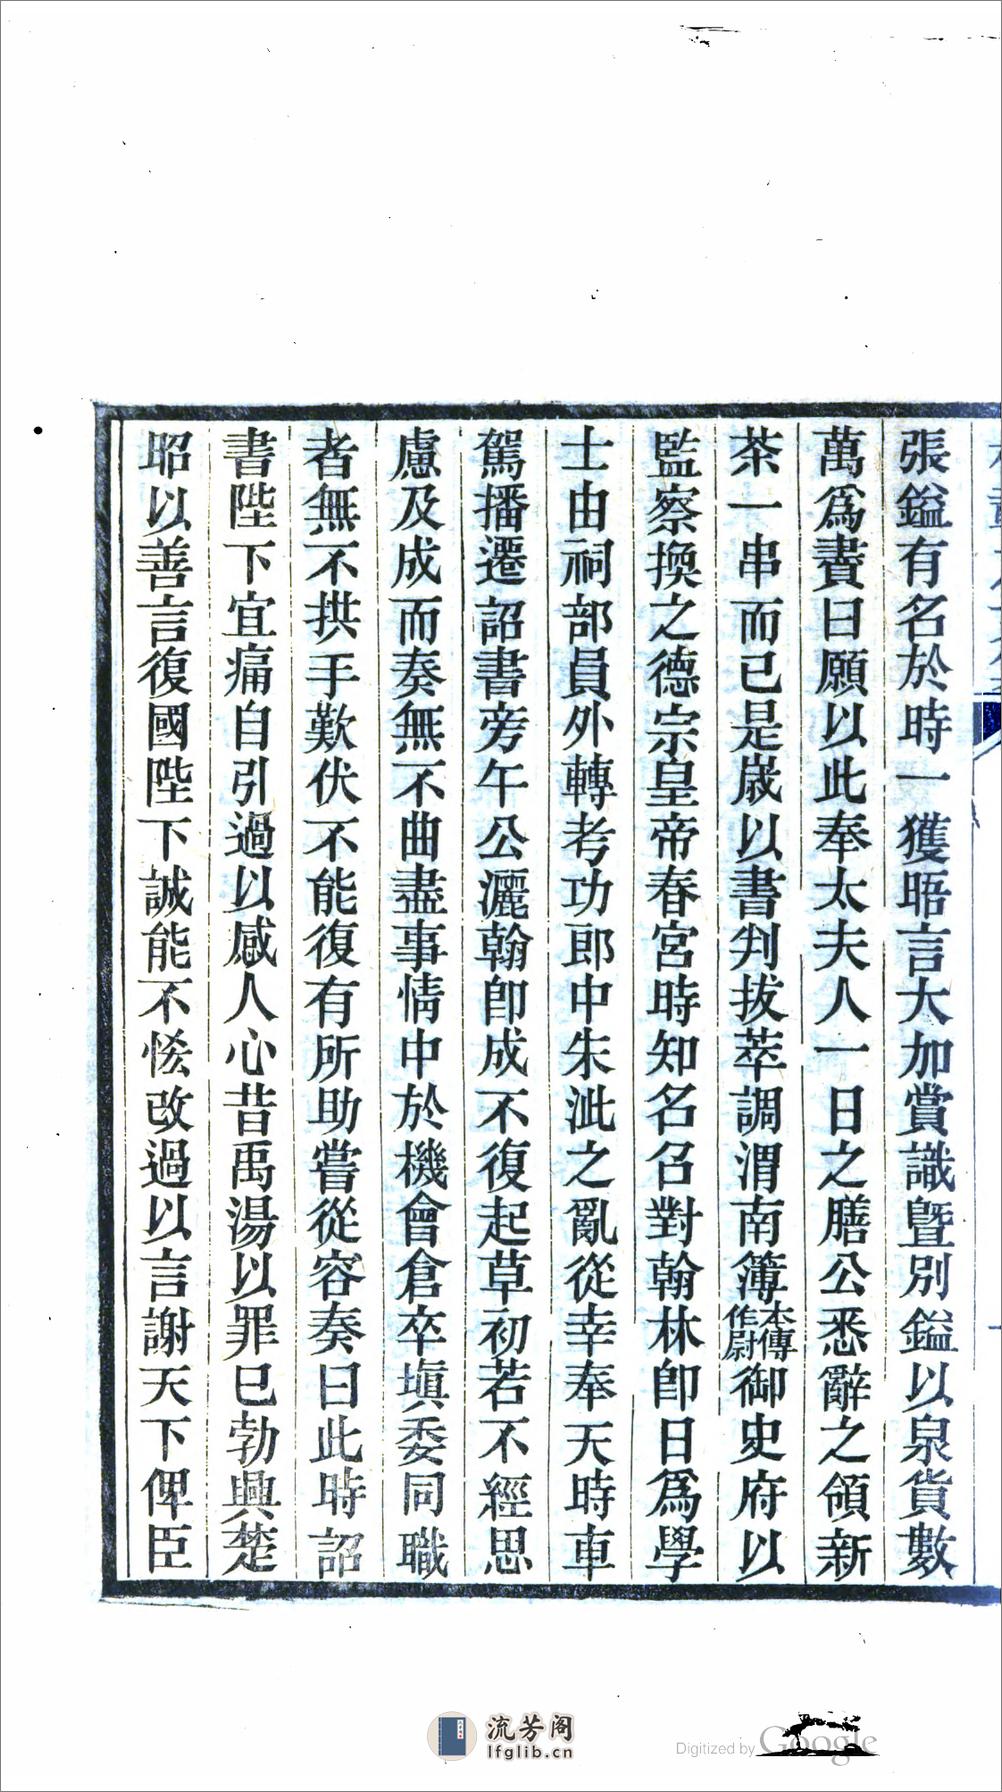 張鎰有名於時一獲晤言大加賞識曁別鎰以泉貨數
萬爲賮曰願以此奉太夫人一日之膳公悉辭之領新
茶一串而已是歲以書判拔萃調渭南簿本傳作尉御史府以
監察換之德宗皇帝春宮時知名召對翰林卽日爲學
士由祠部員外轉考功郎中朱泚之亂從幸奉天時車
駕播遷詔書旁午公灑翰卽成不復起草初若不經思
慮及成而奏無不曲盡事情中於機會倉卒塡委同職
者無不拱手歎伏不能復有所助嘗從容奏曰此時詔
書陛下宜痛自引過以感人心昔禹湯以罪已勃興楚
昭以善言復國陛下誠能不恡改過以言謝天下俾臣
流芳阁
lfglib.cn
Digitized by Google